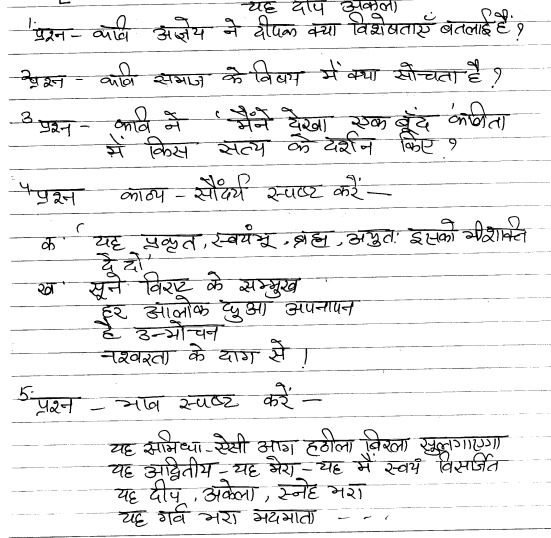 यह दीप अकेला
1. प्रश्न - कवि अज्ञेय ने दीपक क्या विशेषताएँ बतलाई हैं ?
2. प्रश्न - कवि समाज के विषय में क्या सोचता है ?
3 प्रश्न - कवि ने 'मैंने देखा एक बूँद' कविता
में किस सत्य के दर्शन किए ?
4 प्रश्न काव्य - सौंदर्य स्पष्ट करें —
क. ' यह प्रकृत, स्वयंभू, ब्रह्म, अयुतः इसको भी शक्ति
दे दो'
ख सूने विराट के सम्मुख
हर आलोक छुआ अपनापन
है उन्मोचन
नश्वरता के दाग से ।
5. प्रश्न - भाव स्पष्ट करें -
यह समिधा - ऐसी आग हठीला बिरला सुलगाएगा
यह अद्वितीय - यह मेरा - यह मैं स्वयं विसर्जित
यह दीप, अकेला, स्नेह भरा
यह गर्व भरा मदमाता - - .